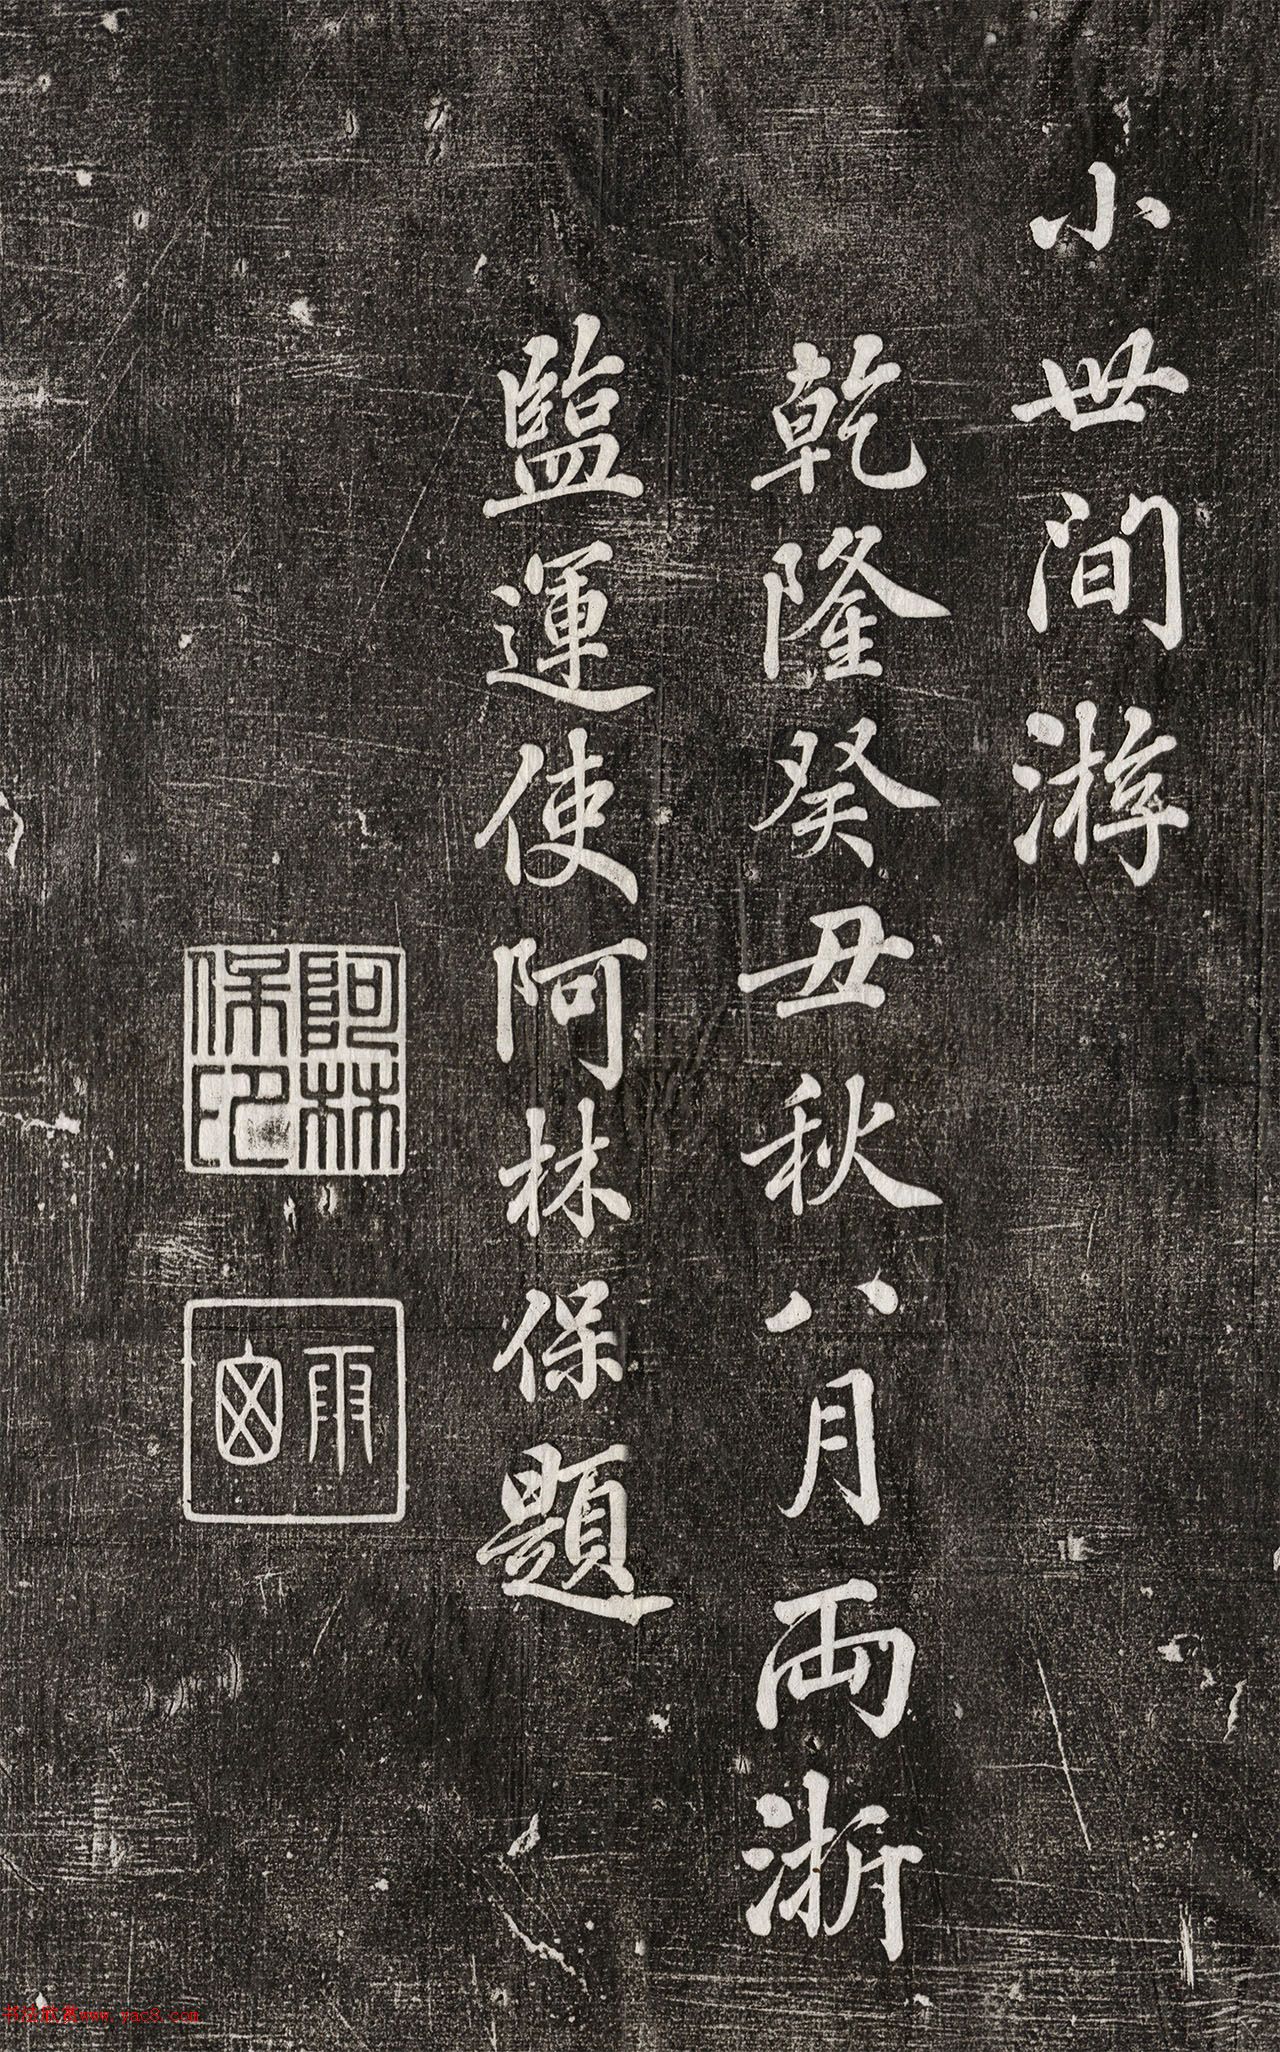 小世間游
乾隆癸丑秋八月兩浙
監運使阿林保題
阿林
保印
雨
书法欣赏www.yac8.com